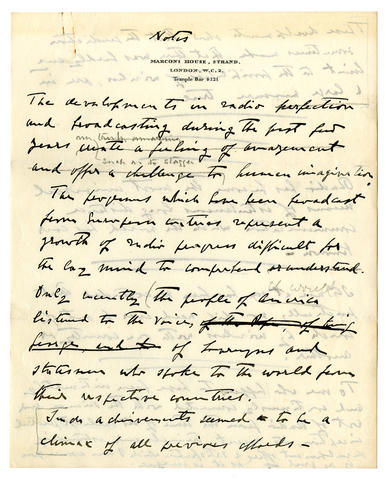 Notes
MARCONI HOUSE, STRAND,
LONDON, W.C.2.
Temple Bar 4321
The developments in radio perfection
and broadcasting during the past few
years create a feeling of amazement
such as to stagger
and offer a challenge to human imagination
The programs which have been broadcast
from European countries represent a
growth of radio progress difficult for
the lay mind to comprehend or understand.
Only recently (the people of America
listened to the voices of the Pope, of King
George, and to of sovereigns and
statesmen who spoke to the world from
their respective countries.
Such achievements seemed to be a
climax of all previous efforts -